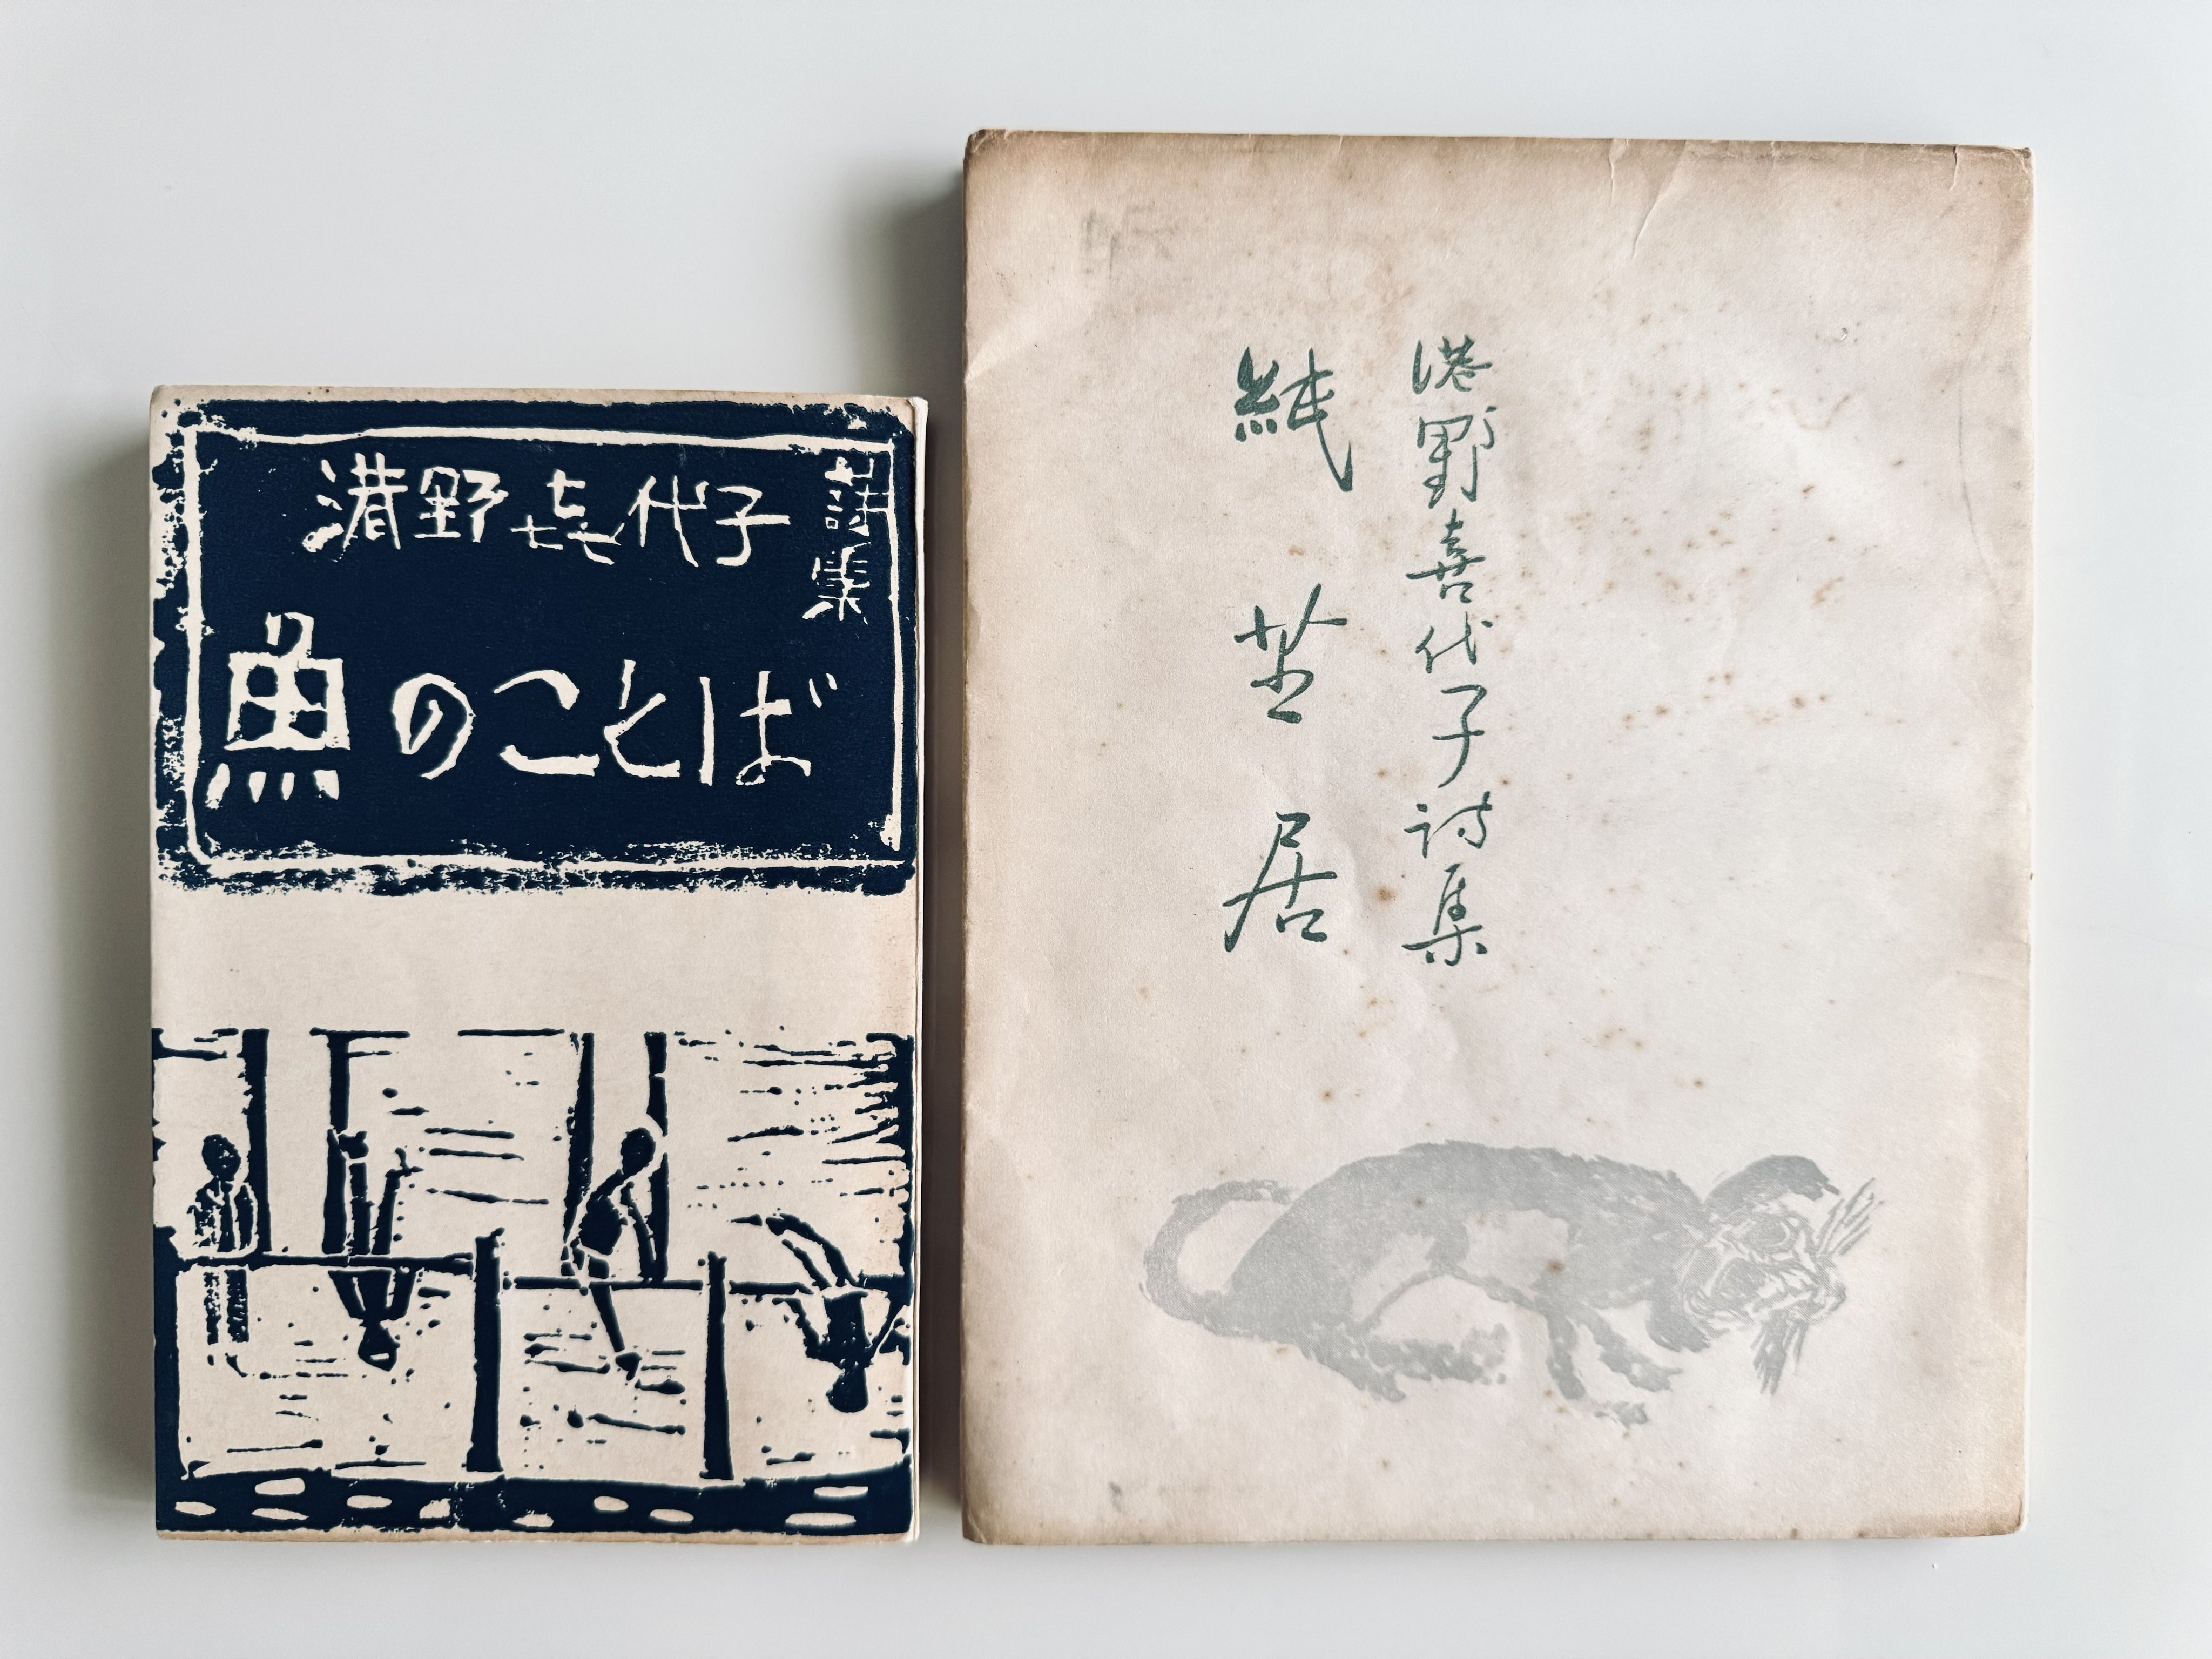 詩集
港野㐂代子
魚のことば
港野喜代子詩集
紙芝居